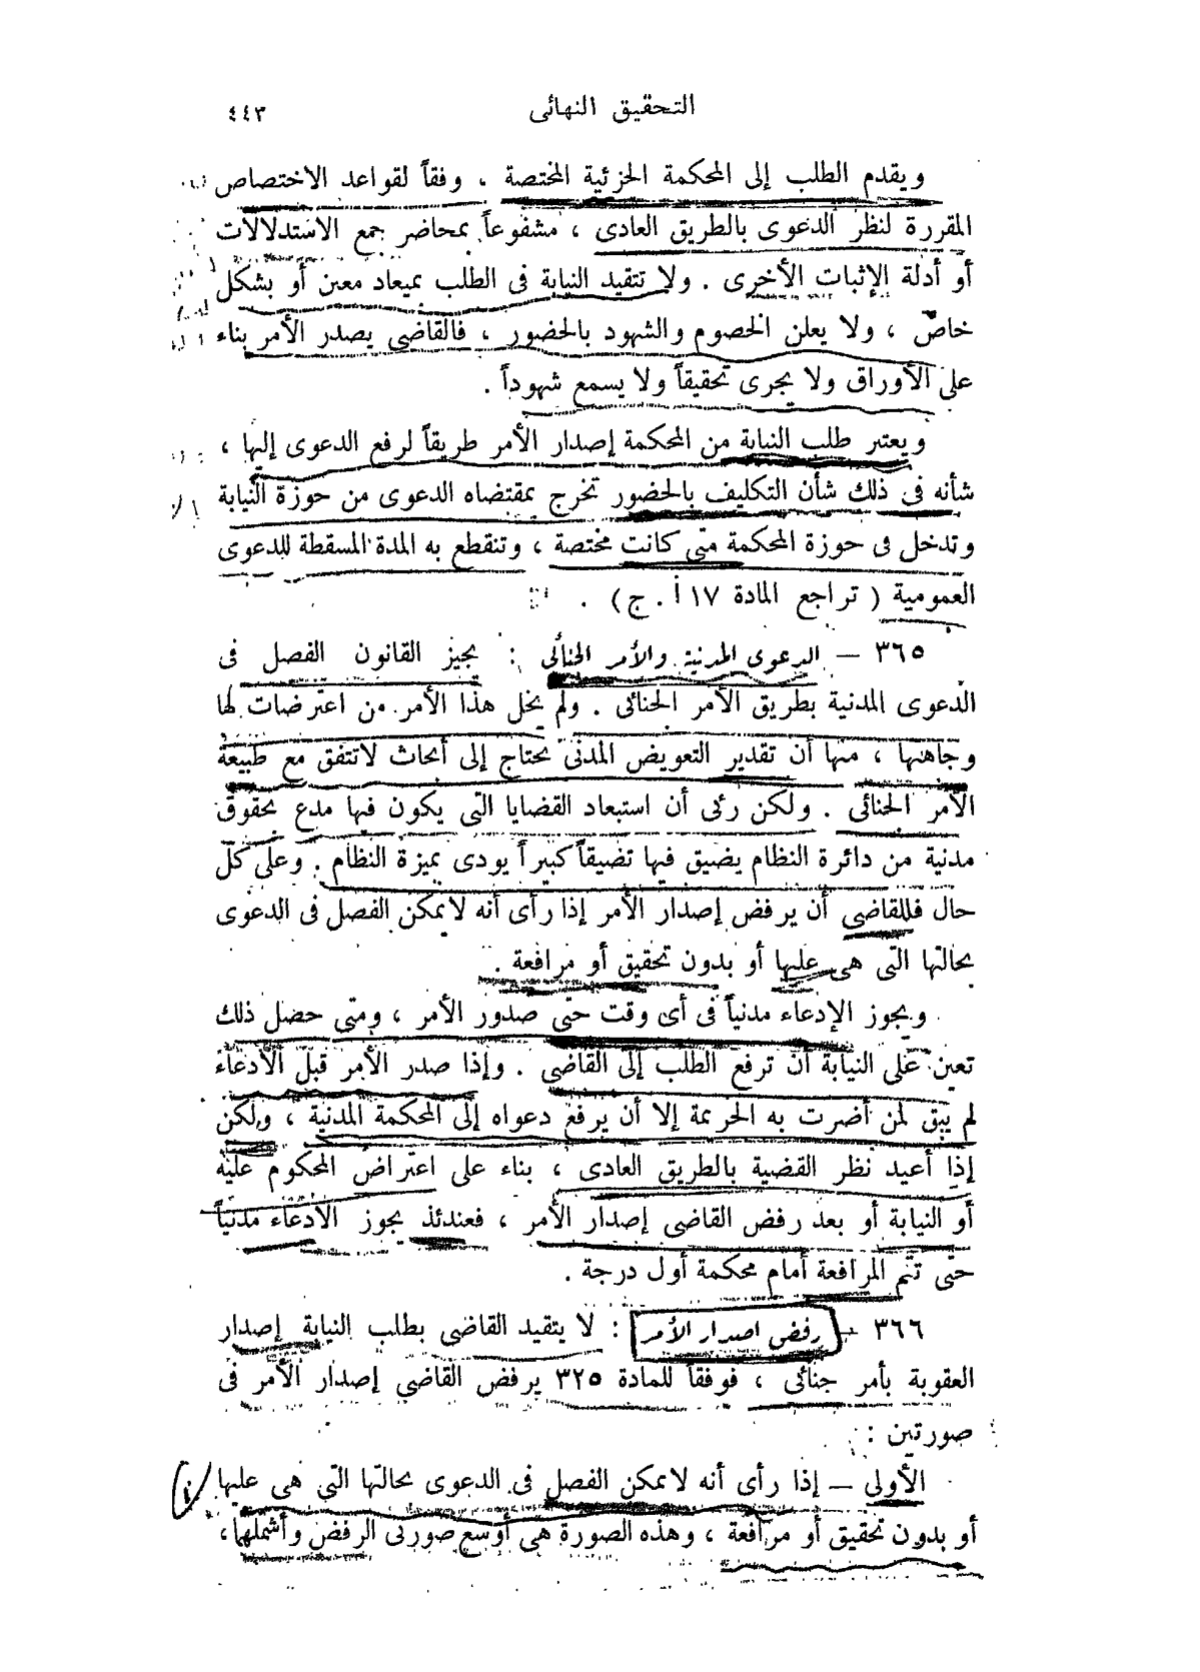 التحقيق النهائى ٤٤٣
ويقدم الطلب إلى المحكمة الجزئية المختصة ، وفقاً لقواعد الاختصاص
المقررة لنظر الدعوى بالطريق العادى ، مشفوعاً بمحاضر جمع الاستدلالات
أو أدلة الإثبات الأخرى . ولا تتقيد النيابة فى الطلب بميعاد معين أو بشكل
خاص ، ولا يعلن الخصوم والشهود بالحضور ، فالقاضى يصدر الأمر بناء
على الأوراق ولا يجرى تحقيقاً ولا يسمع شهوداً .
ويعتبر طلب النيابة من المحكمة إصدار الأمر طريقاً لرفع الدعوى إليها ،
شأنه فى ذلك شأن التكليف بالحضور تخرج بمقتضاه الدعوى من حوزة النيابة
وتدخل فى حوزة المحكمة متى كانت مختصة ، وتنقطع به المدة المسقطة للدعوى
العمومية ( تراجع المادة ١٧ أ . ج ) .
٣٦٥ – الدعوى المدنية والأمر الجنائى : يجيز القانون الفصل فى
الدعوى المدنية بطريق الأمر الجنائى . ولم يخل هذا الأمر من اعتراضات لها
وجاهتها ، منها أن تقدير التعويض المدنى يحتاج إلى أبحاث لاتتفق مع طبيعة
الأمر الجنائى . ولكن رئى أن استبعاد القضايا التى يكون فيها مدع بحقوق
مدنية من دائرة النظام يضيق فيها تضيقاً كبيراً يودى بميزة النظام . وعلى كل
حال فللقاضى أن يرفض إصدار الأمر إذا رأى أنه لايمكن الفصل فى الدعوى
بحالتها التى هى عليها أو بدون تحقيق أو مرافعة .
ويجوز الإدعاء مدنياً فى أى وقت حتى صدور الأمر ، ومتى حصل ذلك
تعين على النيابة أن ترفع الطلب إلى القاضى . وإذا صدر الأمر قبل الادعاء
لم يبق لمن أضرت به الجريمة إلا أن يرفع دعواه إلى المحكمة المدنية ، ولكن
إذا أعيد نظر القضية بالطريق العادى ، بناء على اعتراض المحكوم عليه
أو النيابة أو بعد رفض القاضى إصدار الأمر ، فعندئذ يجوز الادعاء مدنياً
حتى تتم المرافعة أمام محكمة أول درجة .
٣٦٦ – رفض اصدار الأمر : لا يتقيد القاضى بطلب النيابة إصدار
العقوبة بأمر جنائى ، فوفقاً للمادة ٣٢٥ يرفض القاضى إصدار الأمر فى
صورتين :
الأولى – إذا رأى أنه لايمكن الفصل فى الدعوى بحالتها التى هى عليها
أو بدون تحقيق أو مرافعة ، وهذه الصورة هى أوسع صورتى الرفض وأشملها ،